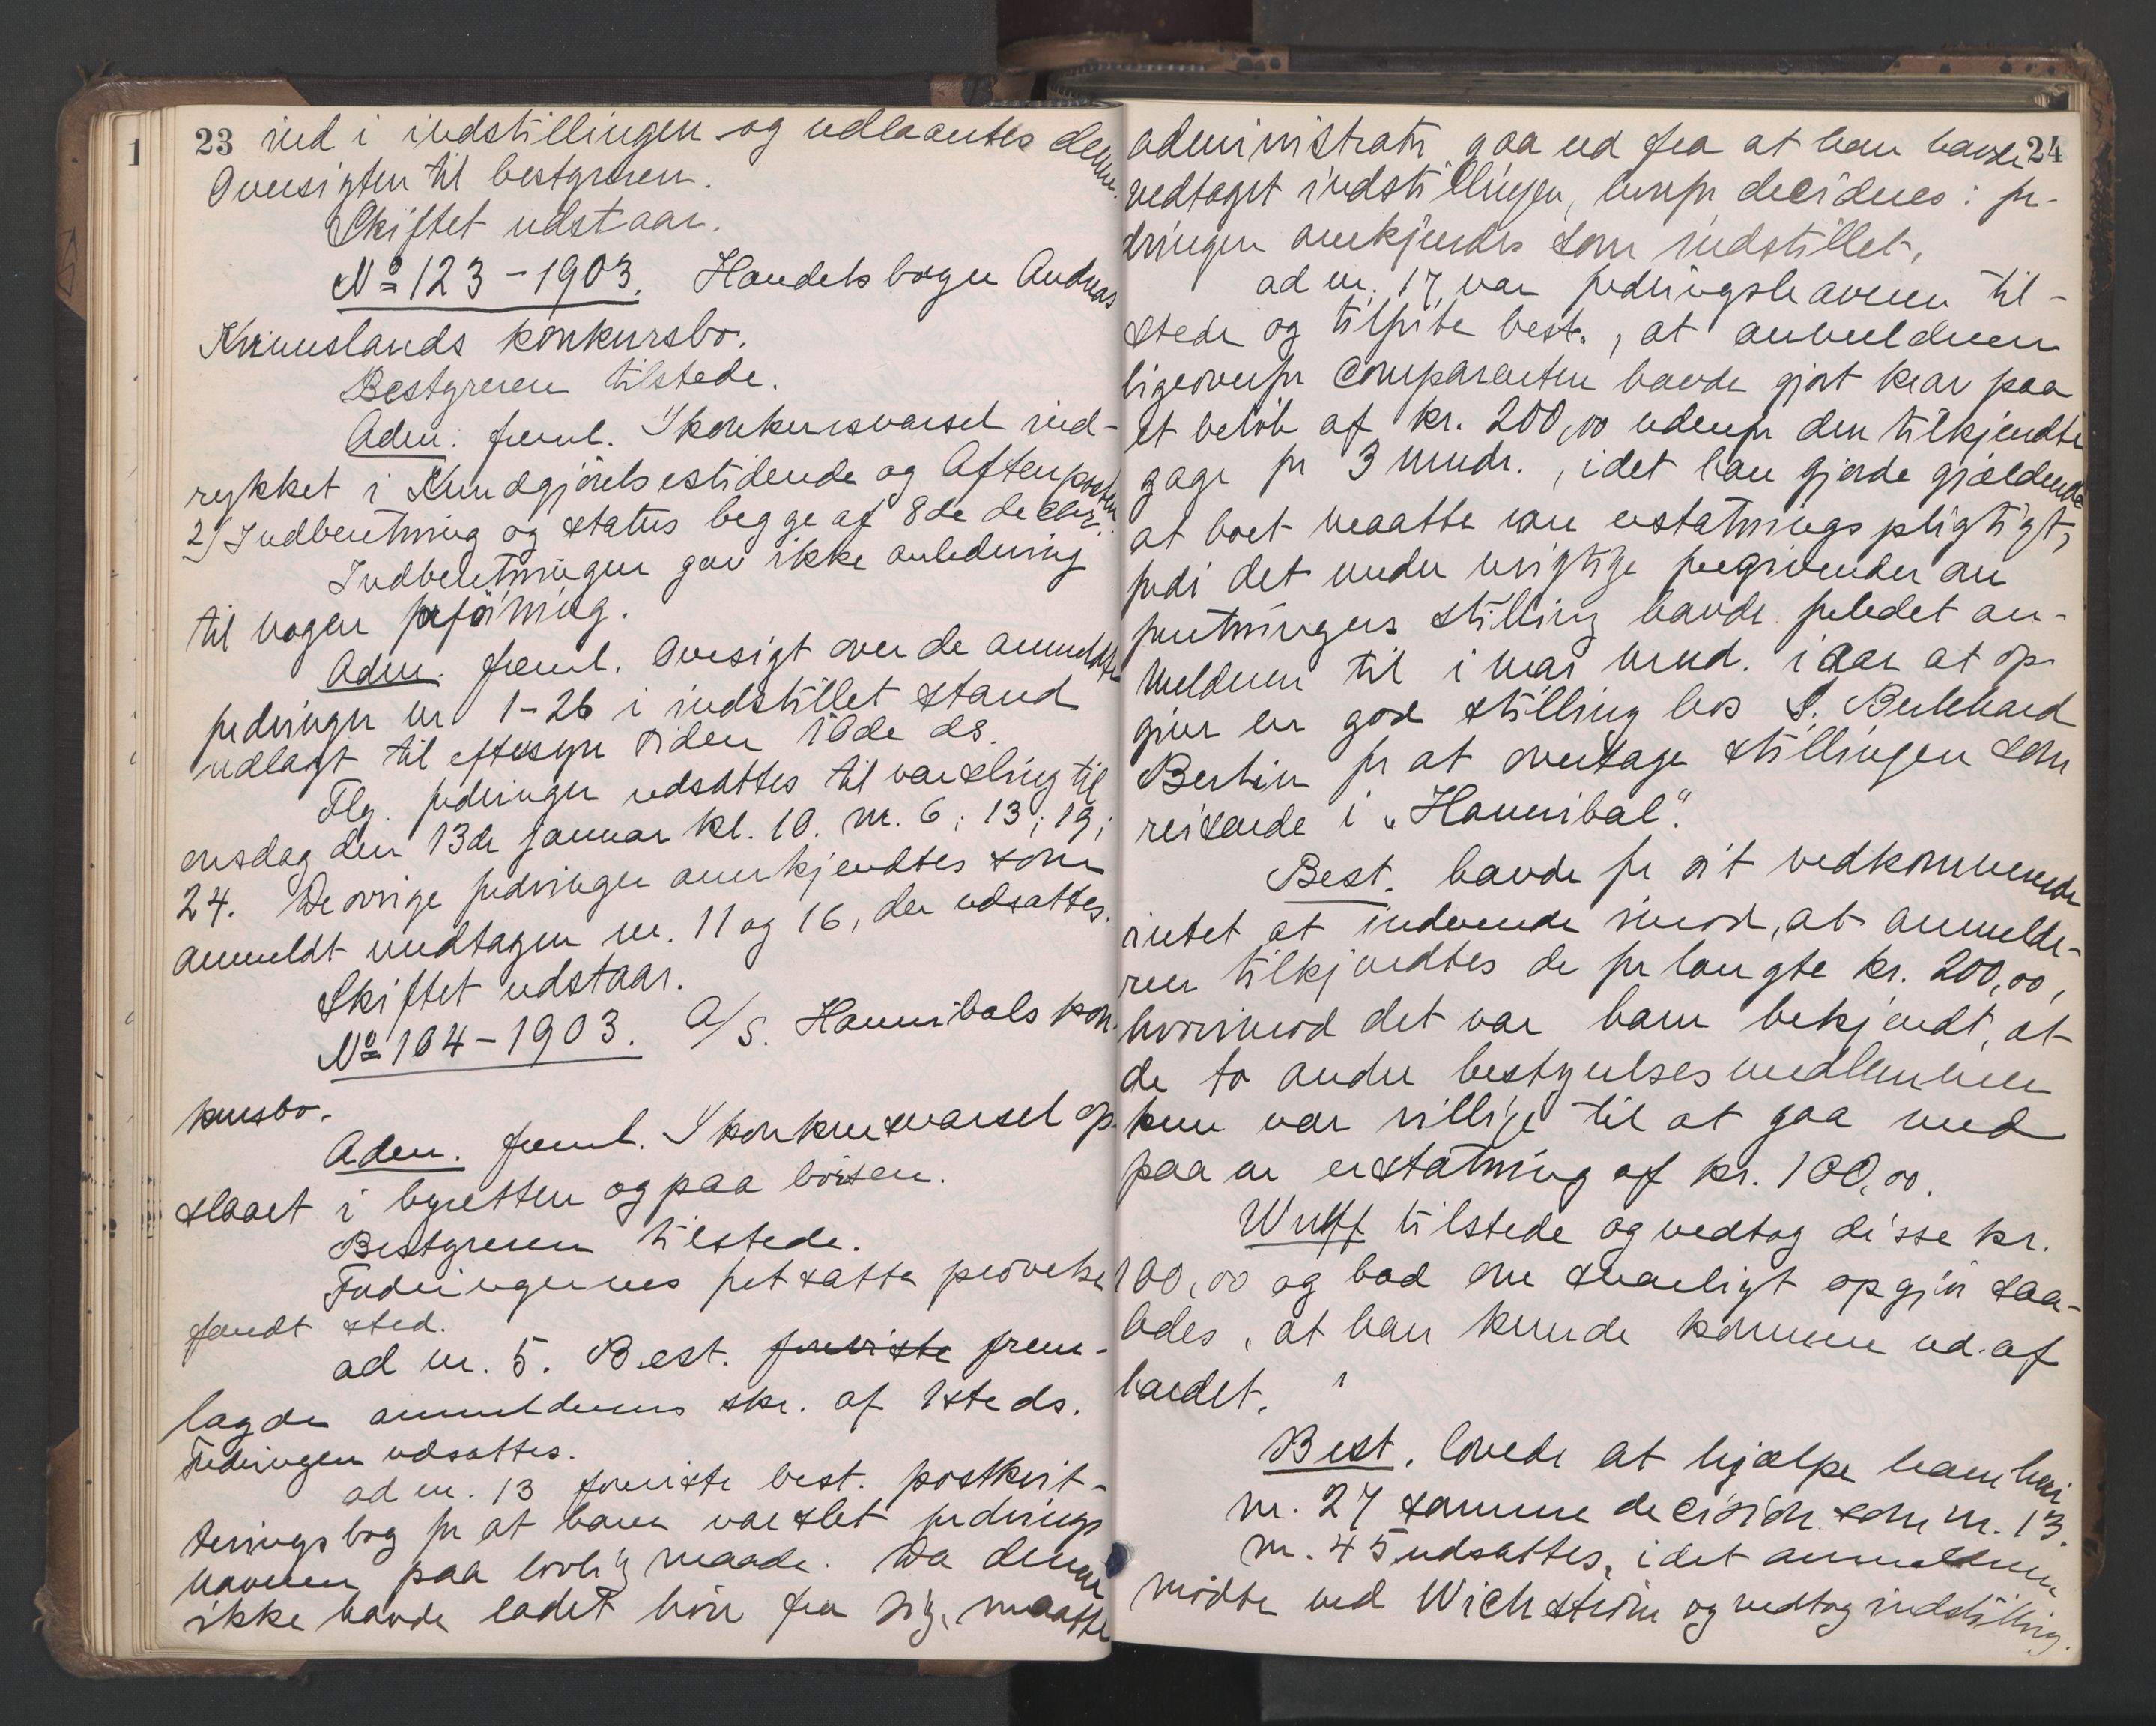 1
23 ind i indstillingen og udlaantes denne
Oversigten til bestyreren.
Skiftet udstaar.
No 123-1903. Handelsborger Andreas
Kriuuslands konkursbo.
Bestyreren tilstede.
Adm. freml. 1/ konkursvarsel ind-
rykket i Kundgjörelsestidende og Aftenposten
2/ Indberetning og status begge af 8de decbr.
Indberetningen gav ikke anledning
til nogen forföining.
Adm. freml. Oversigt over de anmeldte
fordringer nr 1-26 i indstillet stand
udlagt til eftersyn siden 16de ds.
Flg. fordringer udsattes til varsling til
onsdag den 13de januar kl. 10. nr. 6; 13; 19;
24. De övrige fordringer anerkjendtes som
anmeldt undtagen nr. 11 og 16, der udsattes.
Skiftet udstaar.
No 104-1903. A/S. Hannibals kon-
kursbo.
Adm. freml. 1/ konkursvarsel op-
slaaet i byretten og paa börsen.
Bestyreren tilstede.
Fordringernes fortsatte prövelse
fandt sted.
ad nr. 5. Best. foreviste frem-
lagde anmelderens skr. af 1ste ds.
Fordringen udsattes.
ad nr. 13 foreviste best. postkvit-
teringsbog for at have varslet fordrings-
haveren paa lovlig maade. Da denne
ikke havde ladet höre fra sig, maatte
24
administrator gaa ud fra at han havde
vedtaget indstillingen, hvorfor decideres: for-
dringen anerkjendes som indstillet.
ad nr. 17 var fordringshaveren til-
stede og tilförte best., at anmelderen
ligeoverfor comparenten havde gjort krav paa
et belöb af kr. 200,00 udenfor den tilkjendte
gage for 3 mndr., idet han gjorde gjældende
at boet maatte være erstatningspligtigt,
fordi det under urigtige foregivender om
forretningens stilling havde forledet an-
melderen til i mai mnd. iaar at op-
give en god stilling hos S. Bernhard
Berlin for at overtage stillingen som
reisende i "Hannibal".
Best. havde for sit vedkommende
intet at indvende imod, at anmelde-
ren tilkjendtes de forlangte kr. 200,00,
hvorimod det var ham bekjendt, at
de to andre bestyrelsesmedlemmer
kun var villige til at gaa med
paa en erstatning af kr. 100,00.
Wulff tilstede og vedtog disse kr.
100,00 og bad om snarligt opgjör saa-
ledes, at han kunde komme ud af
landet.
Best. lovede at hjælpe ham heri.
nr. 27 samme decision som nr. 13.
nr. 45 udsattes, idet anmelderen
mödte ved Wichström og vedtog indstilling.